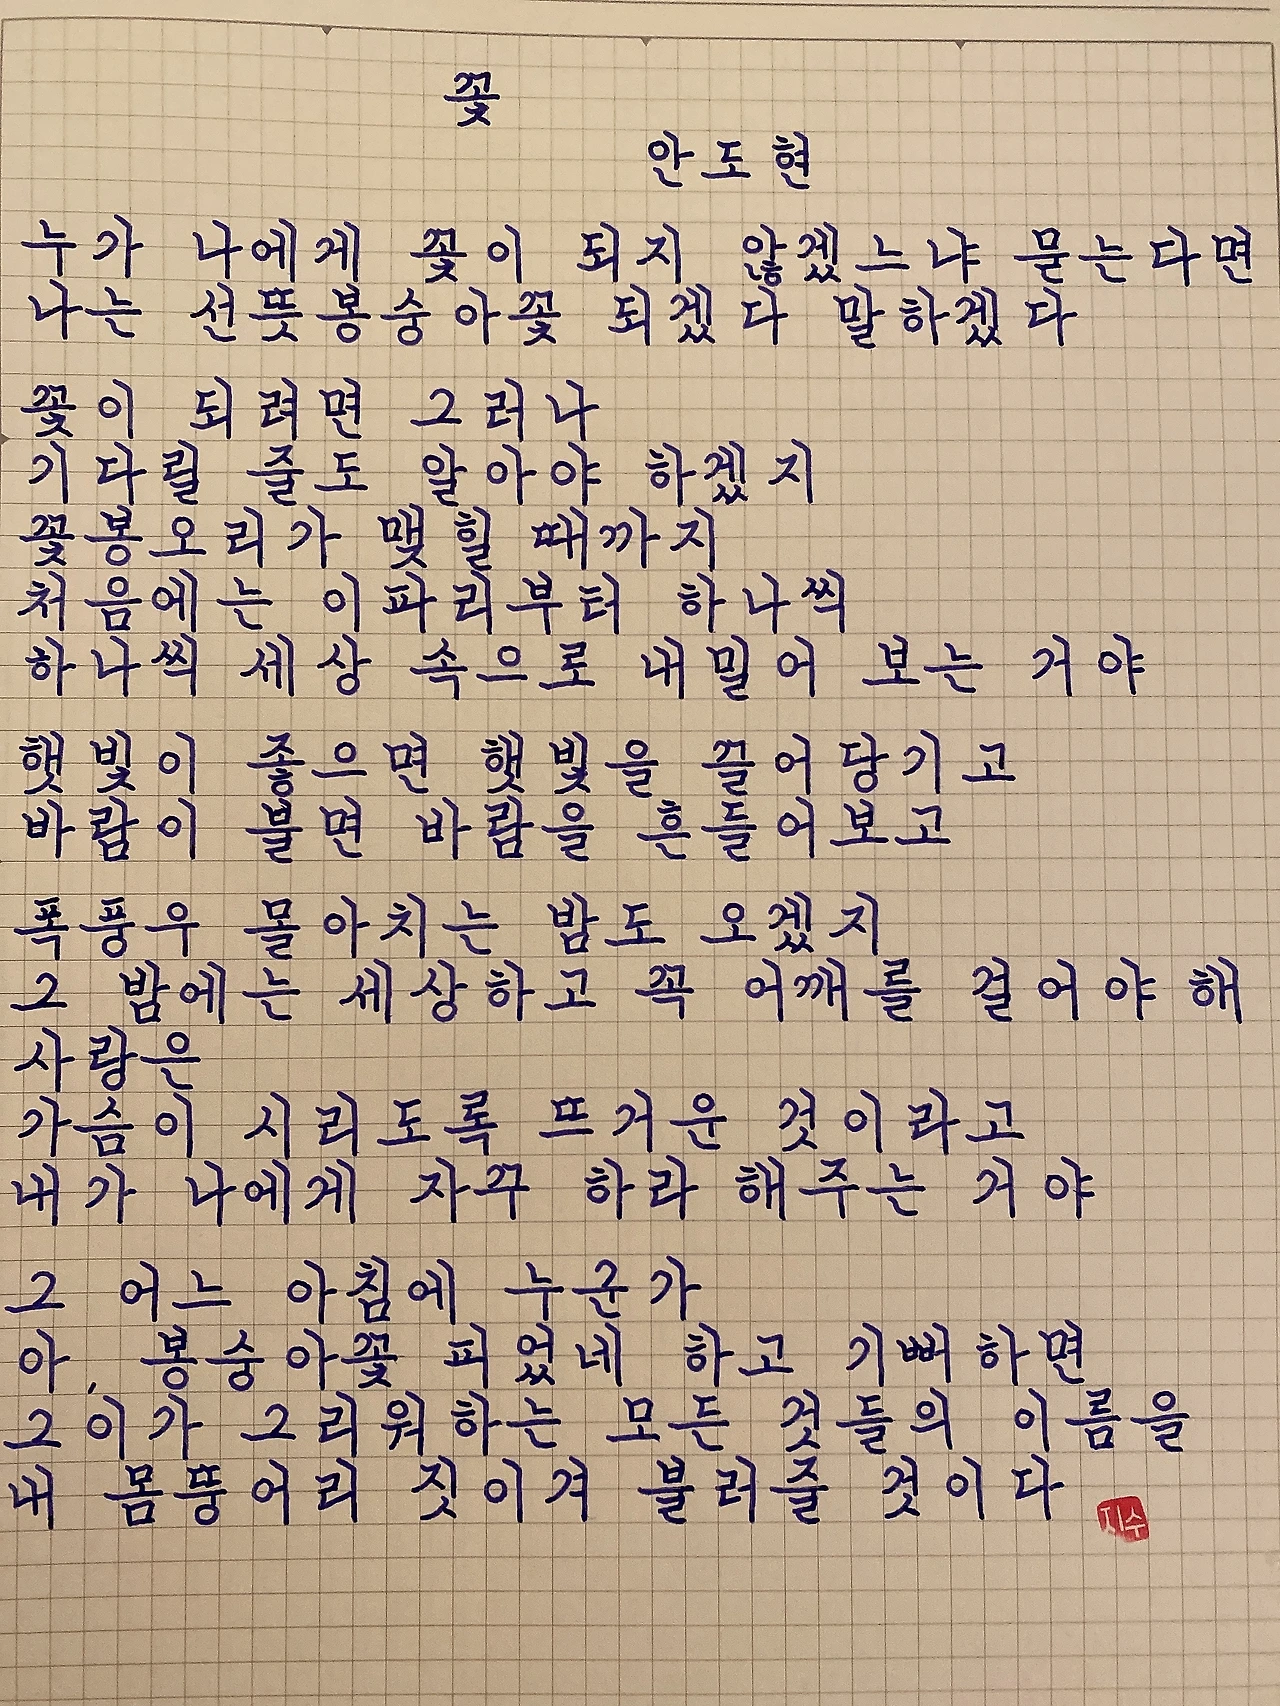 꽃
안도현
누가 나에게 꽃이 되지 않겠느냐 묻는다면
나는 선뜻봉숭아꽃 되겠다 말하겠다
꽃이 되려면 그러나
기다릴 줄도 알아야 하겠지
꽃봉오리가 맺힐 때까지
처음에는 이파리부터 하나씩
하나씩 세상 속으로 내밀어 보는 거야
햇빛이 좋으면 햇빛을 끌어당기고
바람이 불면 바람을 흔들어보고
폭풍우 몰아치는 밤도 오겠지
그 밤에는 세상하고 꼭 어깨를 걸어야 해
사랑은
가슴이 시리도록 뜨거운 것이라고
내가 나에게 자꾸 하라 해주는 거야
그 어느 아침에 누군가
아, 봉숭아꽃 피었네 하고 기뻐하면
그이가 그리워하는 모든 것들의 이름을
내 몸뚱어리 짓이겨 불러줄 것이다
지수